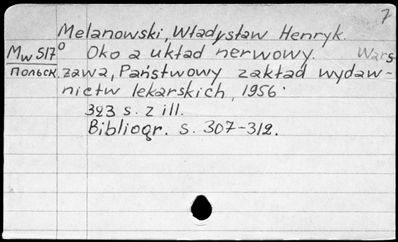 7
Melanowski, Władysław Henryk.
Mw 517⁰ Oko a układ nerwowy. Wars-
польск. zawa, Państwowy zakład wydaw-
nictw lekarskich, 1956.
323 s. z ill.
Bibliogr. s. 307-312.